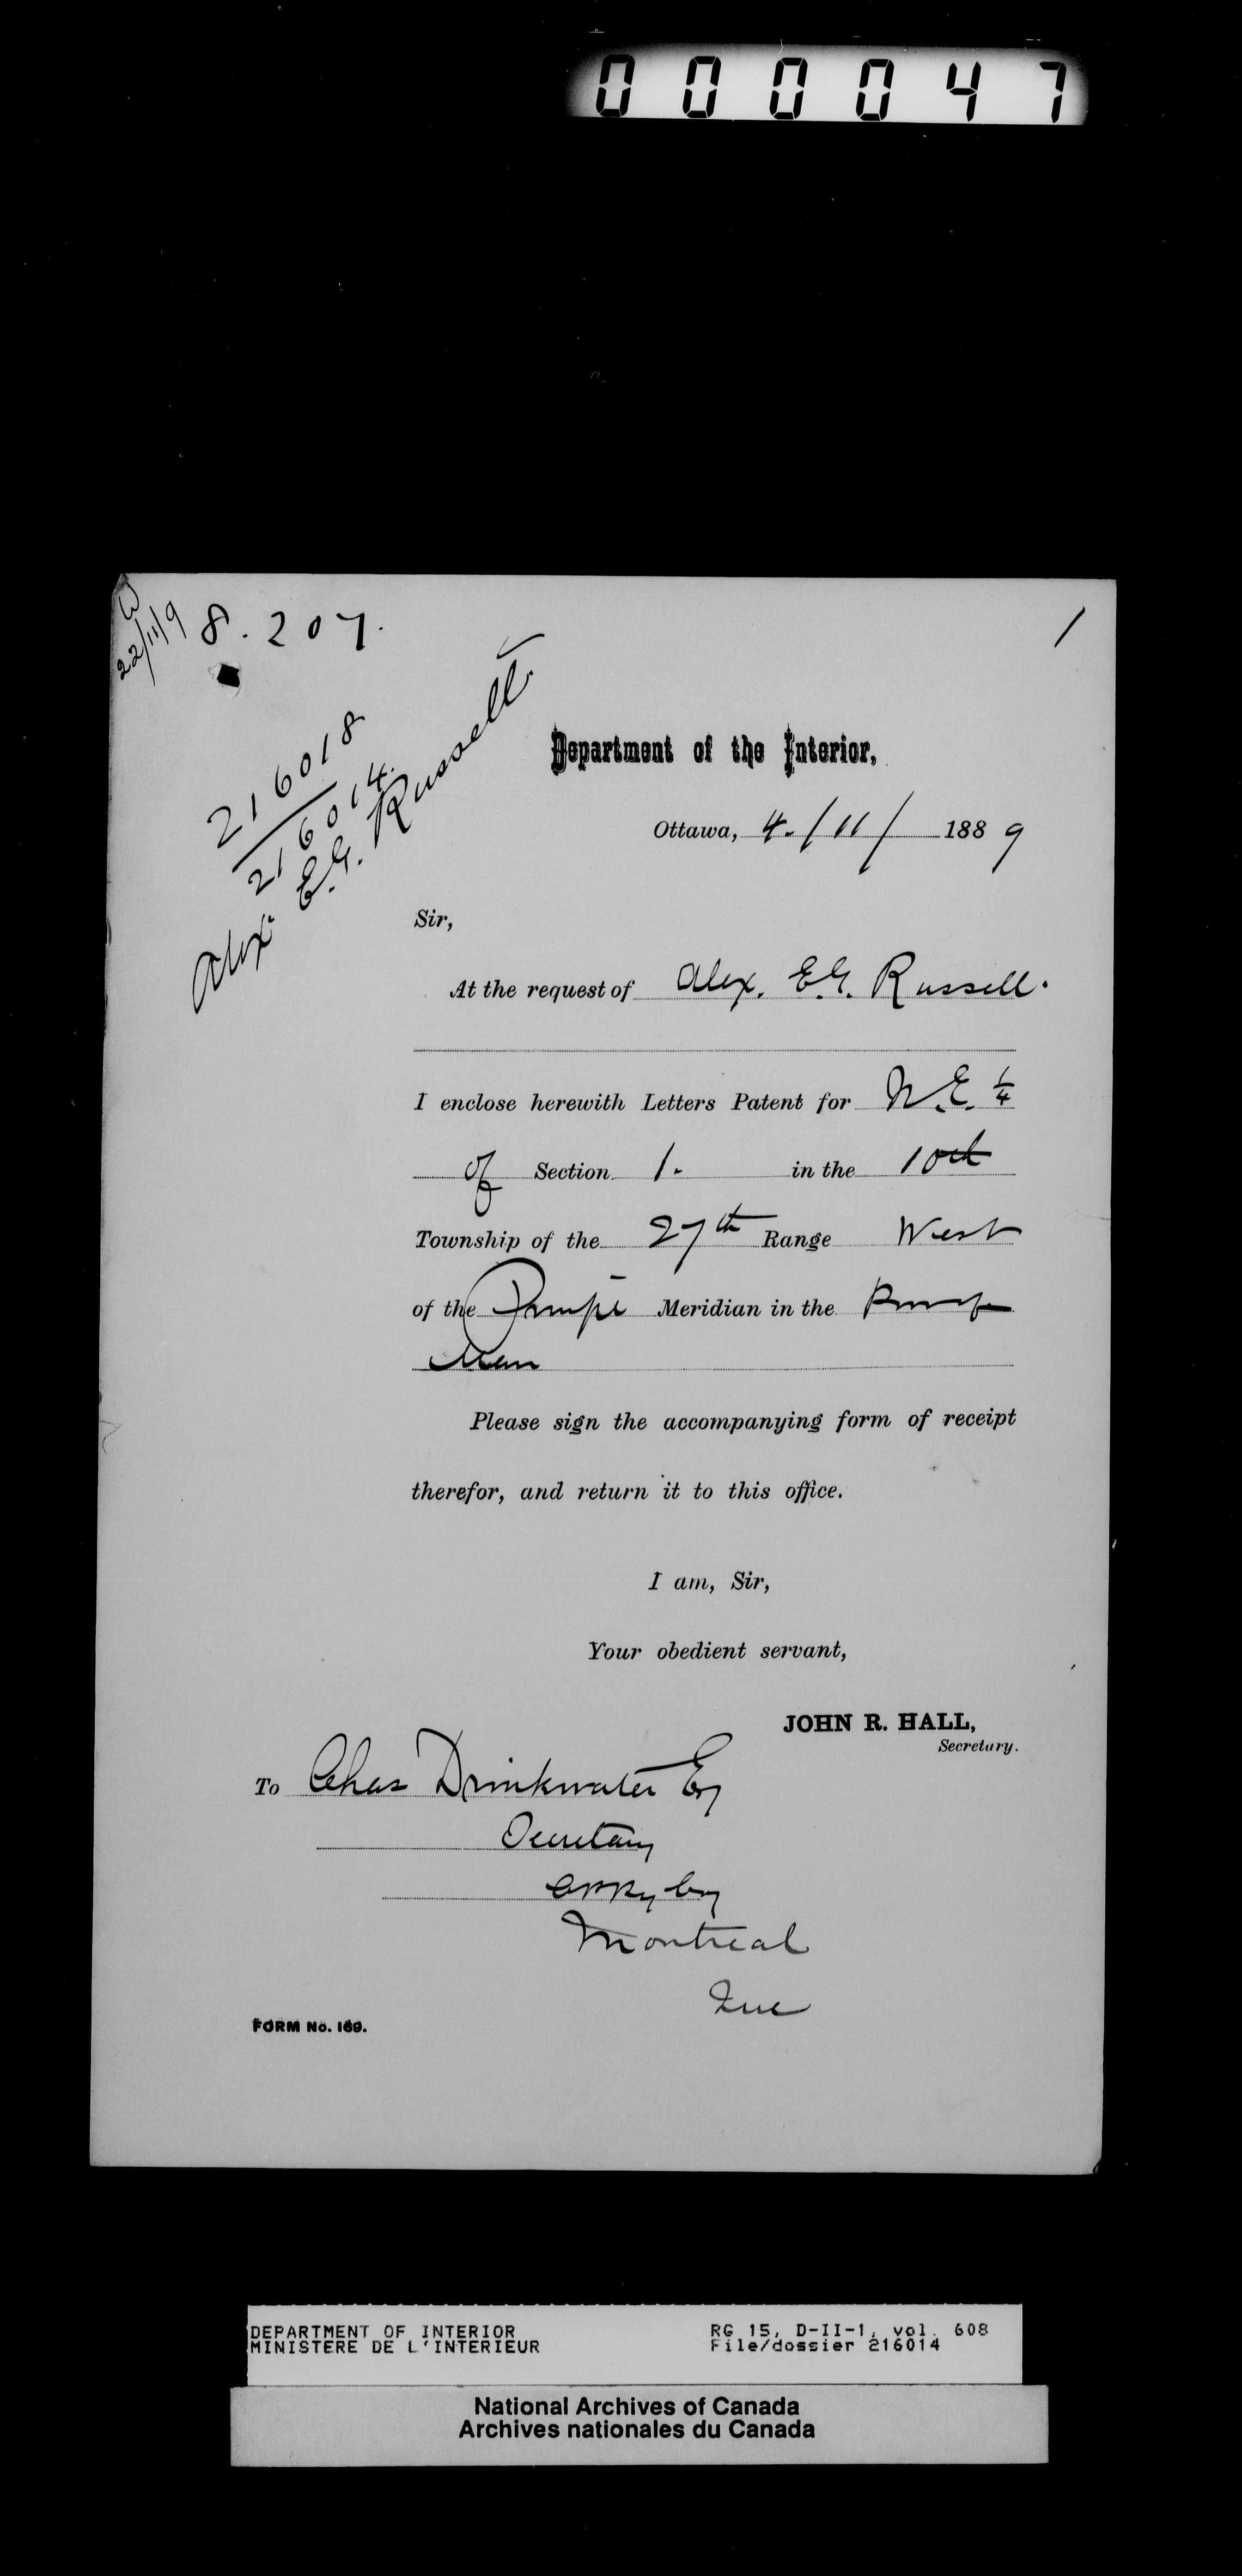 000047
22/11/9
8.207.
1
216018
216014.
Alex. E.G. Russell.
Department of the Interior,
Ottawa, 4./11/ 1889
Sir,
At the request of Alex. E.G. Russell.
I enclose herewith Letters Patent for N.E. 1/4
of Section 1. in the 10th
Township of the 27th Range West
of the Meridian in the
Man
Please sign the accompanying form of receipt
therefor, and return it to this office.
I am, Sir,
Your obedient servant,
JOHN R. HALL,
Secretary.
To Chas Drinkwater Esq
Secretary
CPRy Coy
Montreal
Que
FORM No. 169.
DEPARTMENT OF INTERIOR RG 15, D-II-1, vol. 608
MINISTERE DE L'INTERIEUR File/dossier 216014
National Archives of Canada
Archives nationales du Canada